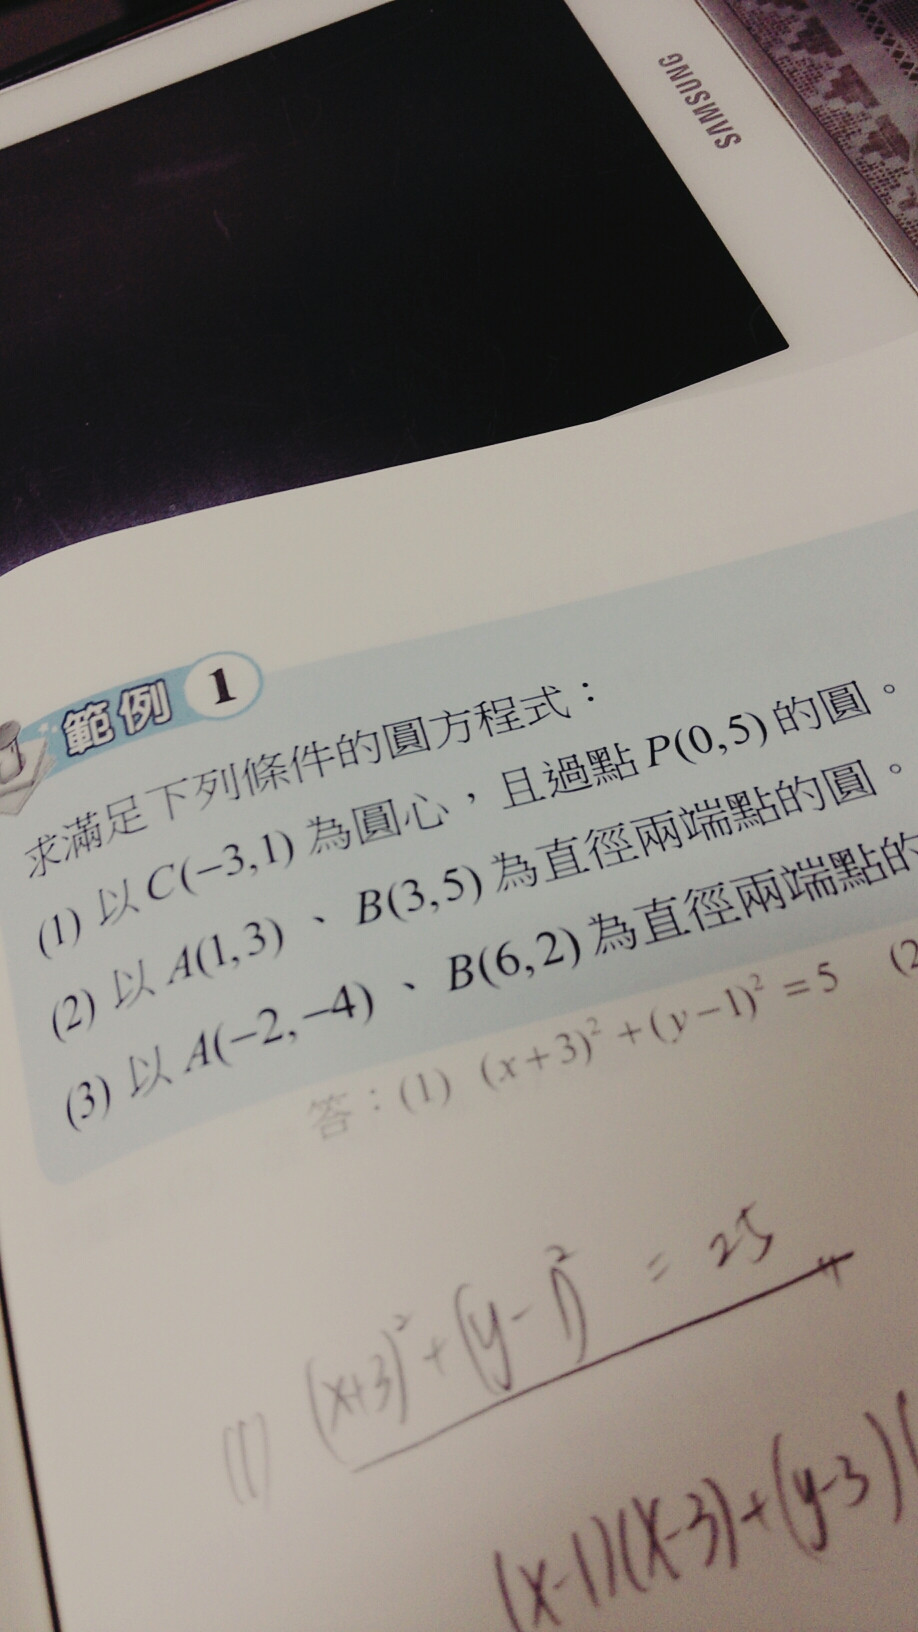 SAMSUNG
範例 1
求滿足下列條件的圓方程式：
(1) 以 C(−3,1) 為圓心，且過點 P(0,5) 的圓。
(2) 以 A(1,3) 、 B(3,5) 為直徑兩端點的圓。
(3) 以 A(−2,−4) 、 B(6,2) 為直徑兩端點的
答：(1) (x+3)² +(y−1)² =5 (2
(1) (x+3)² + (y-1)² = 25
(x-1)(x-3)+(y-3)(